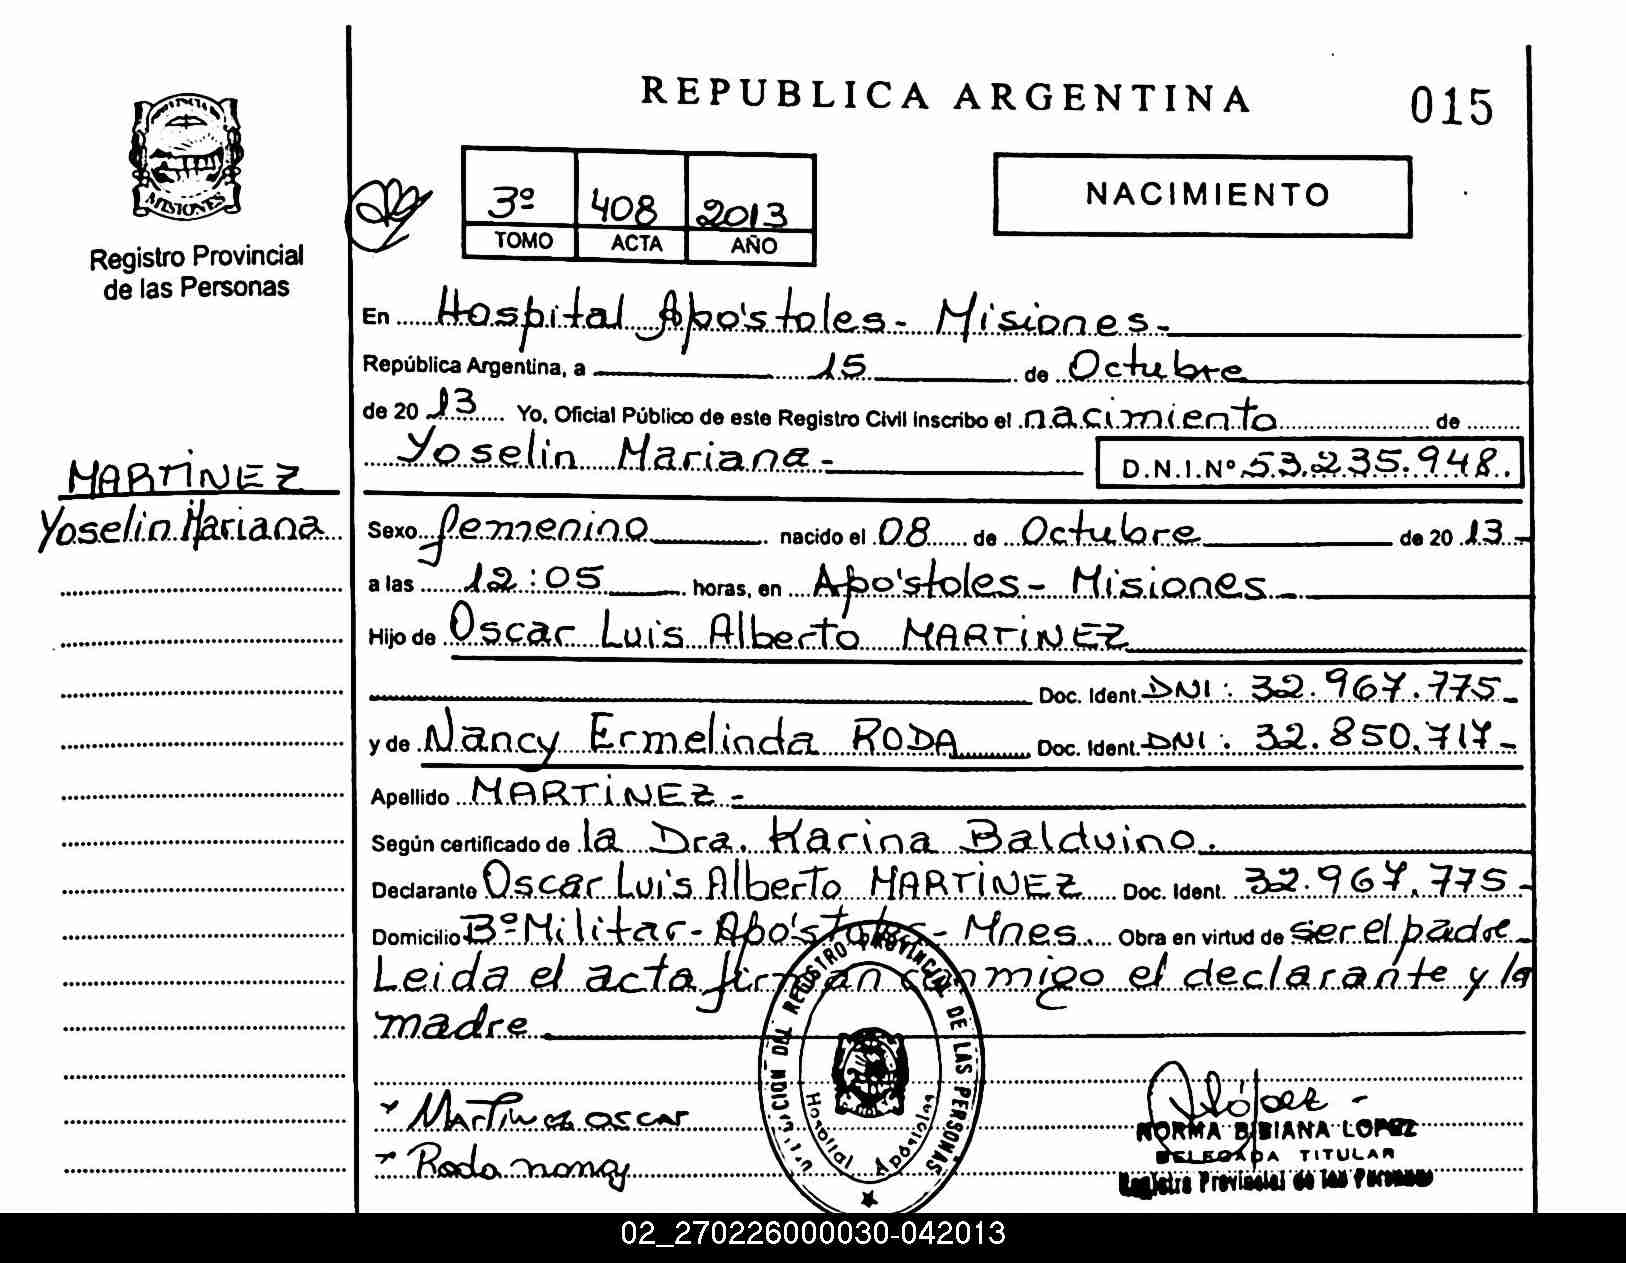 REPUBLICA ARGENTINA
015
MISIONES
Registro Provincial
de las Personas
3º 408 2013
TOMO ACTA AÑO
NACIMIENTO
En Hospital Apóstoles - Misiones -
República Argentina, a 15 de Octubre
de 2013 Yo, Oficial Público de este Registro Civil inscribo el nacimiento de
Yoselin Mariana - D.N.I.Nº 53.235.948.
MARTINEZ
Yoselin Mariana
Sexo femenino nacido el 08 de Octubre de 2013-
a las 12:05 horas, en Apóstoles - Misiones -
Hijo de Oscar Luis Alberto MARTINEZ
Doc. Ident. DNI: 32.967.775-
y de Nancy Ermelinda RODA Doc. Ident. DNI: 32.850.717-
Apellido MARTINEZ -
Según certificado de la Dra. Karina Balduino.
Declarante Oscar Luis Alberto MARTINEZ Doc. Ident. 32.967.775-
Domicilio Bº Militar - Apóstoles - Mnes. Obra en virtud de ser el padre
Leida el acta firman conmigo el declarante y la
madre
Martinez oscar
Roda nancy
DEL REGISTRO PROVINCIAL DE LAS PERSONAS
Hospital Apóstoles
López
NORMA BIBIANA LOPEZ
DELEGADA TITULAR
Registro Provincial de las Personas
02_270226000030-042013